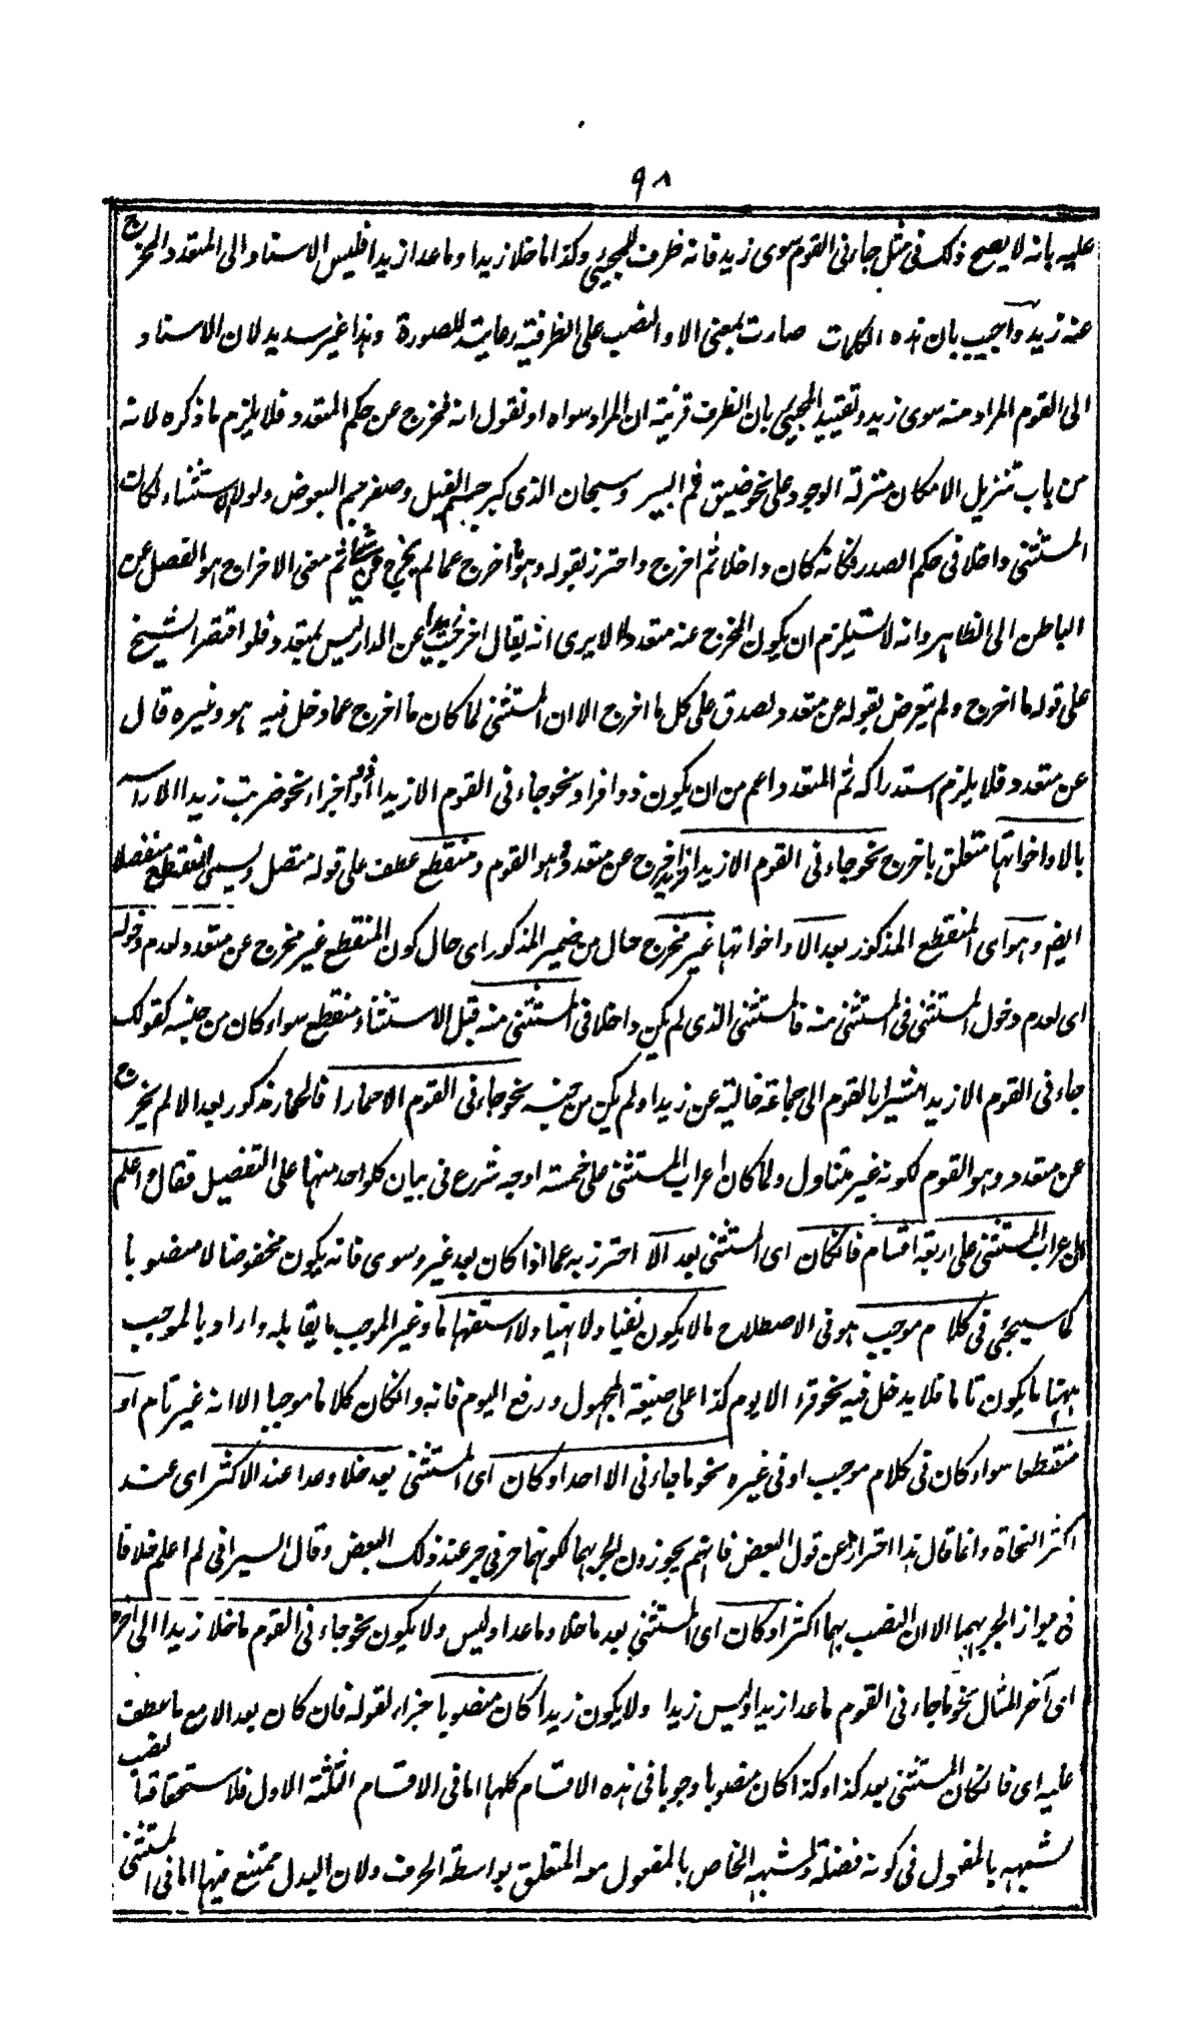 ٩٨
عليه بانه لا يصح ذلك فى مثل جاءنى القوم سوى زيد فانه ظرف للمجيئ وكذا ما خلا زيدا وما عدا زيدا فليس الاسناد الى المتعدد المخرج
عنه زيد واجيب بان هذه الكلمات صارت بمعنى الا والنصب على الظرفية رعاية للصورة وهذا غير سديد لان الاسناد
الى القوم المراد منه سوى زيد وتقييد المجيئ بان الظرف قرينة ان المراد سواه او نقول انه مخرج عن حكم المتعدد فلا يلزم ما ذكره لانه
من باب تنزيل الامكان منزلة الوجود على نحو ضيق فم البير وسبحان الذى كبر جسم الفيل وصغر جسم البعوض ولولا الاستثناء لكان
المستثنى داخلا فى حكم الصدر فكانه كان داخلا ثم اخرج واحترز بقوله وهو ما اخرج عما لم يخرج عن شئ ثم معنى الاخراج هو الفصل عن
الباطن الى الظاهر وانه لا يستلزم ان يكون المخرج عنه متعددا الا يرى انه يقال اخرجت زيدا عن الدار ليس بمتعدد فلو اقتصر الشيخ
على قوله ما اخرج ولم يتعرض بقوله عن متعدد لصدق على كل ما اخرج الا ان المستثنى لما كان ما اخرج عما دخل فيه هو وغيره قال
عن متعدد فلا يلزم استدراكه ثم المتعدد اعم من ان يكون ذو افراد نحو جاءنى القوم الا زيدا او ذو اجزاء نحو ضربت زيدا الا راسه
بالا واخواتها متعلق باخرج نحو جاءنى القوم الا زيدا فزيد اخرج عن متعدد وهو القوم ومنقطع عطف على قوله متصل ويسمى المنقطع منفصلا
ايضا وهو اى المنقطع المذكور بعد الا واخواتها غير مخرج حال من ضمير المذكور اى حال كون المنقطع غير مخرج عن متعدد لعدم دخوله
اى لعدم دخول المستثنى فى المستثنى منه فالمستثنى الذى لم يكن داخلا فى المستثنى منه قبل الاستثناء منقطع سواء كان من جنسه كقولك
جاءنى القوم الا زيدا مشيرا بالقوم الى جماعة خالية عن زيد او لم يكن من جنسه نحو جاءنى القوم الا حمارا فالحمار مذكور بعد الا لم يخرج
عن متعدد وهو القوم لكونه غير متناول ولما كان اعراب المستثنى على خمسة اوجه شرع فى بيان كل واحد منها على التفصيل فقال واعلم
ان اعراب المستثنى على اربعة اقسام فان كان اى المستثنى بعد الا احترز به عما اذا كان بعد غير وسوى فانه يكون مخفوضا لا منصوبا
كما سيجئ فى كلام موجب هو فى الاصطلاح ما لا يكون نفيا ولا نهيا ولا استفهاما وغير الموجب ما يقابله واراد بالموجب
ههنا ما يكون تاما فلا يدخل فيه نحو قرء الا يوم كذا على صيغة المجهول ورفع اليوم فانه وان كان كلاما موجبا الا انه غير تام او
منقطعا سواء كان فى كلام موجب او فى غيره نحو ما جاءنى الا احد او كان اى المستثنى بعد خلا وعدا عند الاكثر اى عند
اكثر النحاة وانما قال هذا احترازا عن قول البعض فانهم يجوزون الجر بهما لكونهما حرفى جر عند ذلك البعض وقال السيرافى لم اعلم خلافا
فى جواز الجر بهما الا ان النصب بهما اكثر او كان اى المستثنى بعد ما خلا وما عدا وليس ولا يكون نحو جاءنى القوم ما خلا زيدا الى اخره
اى آخر المثال نحو ما جاءنى القوم ما عدا زيدا وليس زيدا ولا يكون زيدا كان منصوبا جزاء لقوله فان كان بعد الا مع ما عطف
عليه اى فان كان المستثنى بعد كذا وكذا كان منصوبا وجوبا فى هذه الاقسام كلها اما فى الاقسام الثلثة الاول فلاستحقاقها النصب
لشبهه بالمفعول فى كونه فضلة ولشبهه الخاص بالمفعول معه المتعلق بواسطة الحرف ولان البدل ممتنع فيها اما فى المستثنى